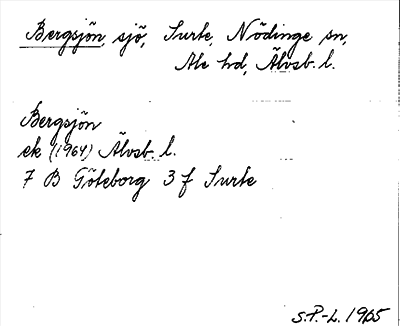 Bergsjön, sjö, Surte, Nödinge sn,
Ale hd, Älvsb. l.
Bergsjön
ek (1964) Älvsb. l.
7 B Göteborg 3 f Surte
S.P.-L. 1965